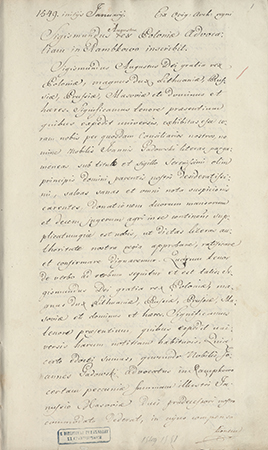 1549. Januarij. Ex Orig. Arch.
Sigismundus Augustus Rex Poloniae Advoca-
tiam in Stambkowa inscribit.
Sigismundus Augustus Dei gratia rex
Poloniae, magnus dux Lithuaniae, Rus-
siae, Prussiae, Masoviae etc. Dominus et
haeres. Significamus tenore praesentium
quibus expedit universis exhibitas esse co-
ram nobis per quosdam Consiliarios nostros, no-
mine Nobilis Joannis Gadowski literas perga-
meneas sub titulo et sigillo Serenissimi olim
principis domini, parentis nostri Desideratissi-
mi, salvas sanas et omni nota suspicionis
carentes, Donationem duorum mansorum
et decem, jugerum agri in se continens sup-
plicatumque est nobis, ut dictas literas au-
thoritate nostra regia approbare, ratificare
et confirmare dignaremur. Quarum tenor
de verbo ad verbum sequitur et est talis. Si-
gismundus dei gratia rex Poloniae, ma-
gnus dux Lithuaniae, Russiae, Prussiae, Ma-
soviae etc. dominus et haeres. Significamus
tenore praesentium, quibus expedit uni-
versis harum, notitiam habituris. Quia
certo edocti sumus, quomodo Nobilis, Jo-
annes Gadowski Advocatus in
certam pecuniae summam Illustri Ja-
nussio Masoviae Duci praedecessori nostro
commodato dederat, in cujus compensa-